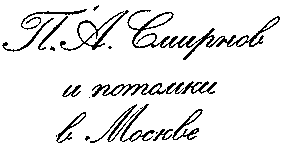 П.А. Смирнов
и потомки
в Москве